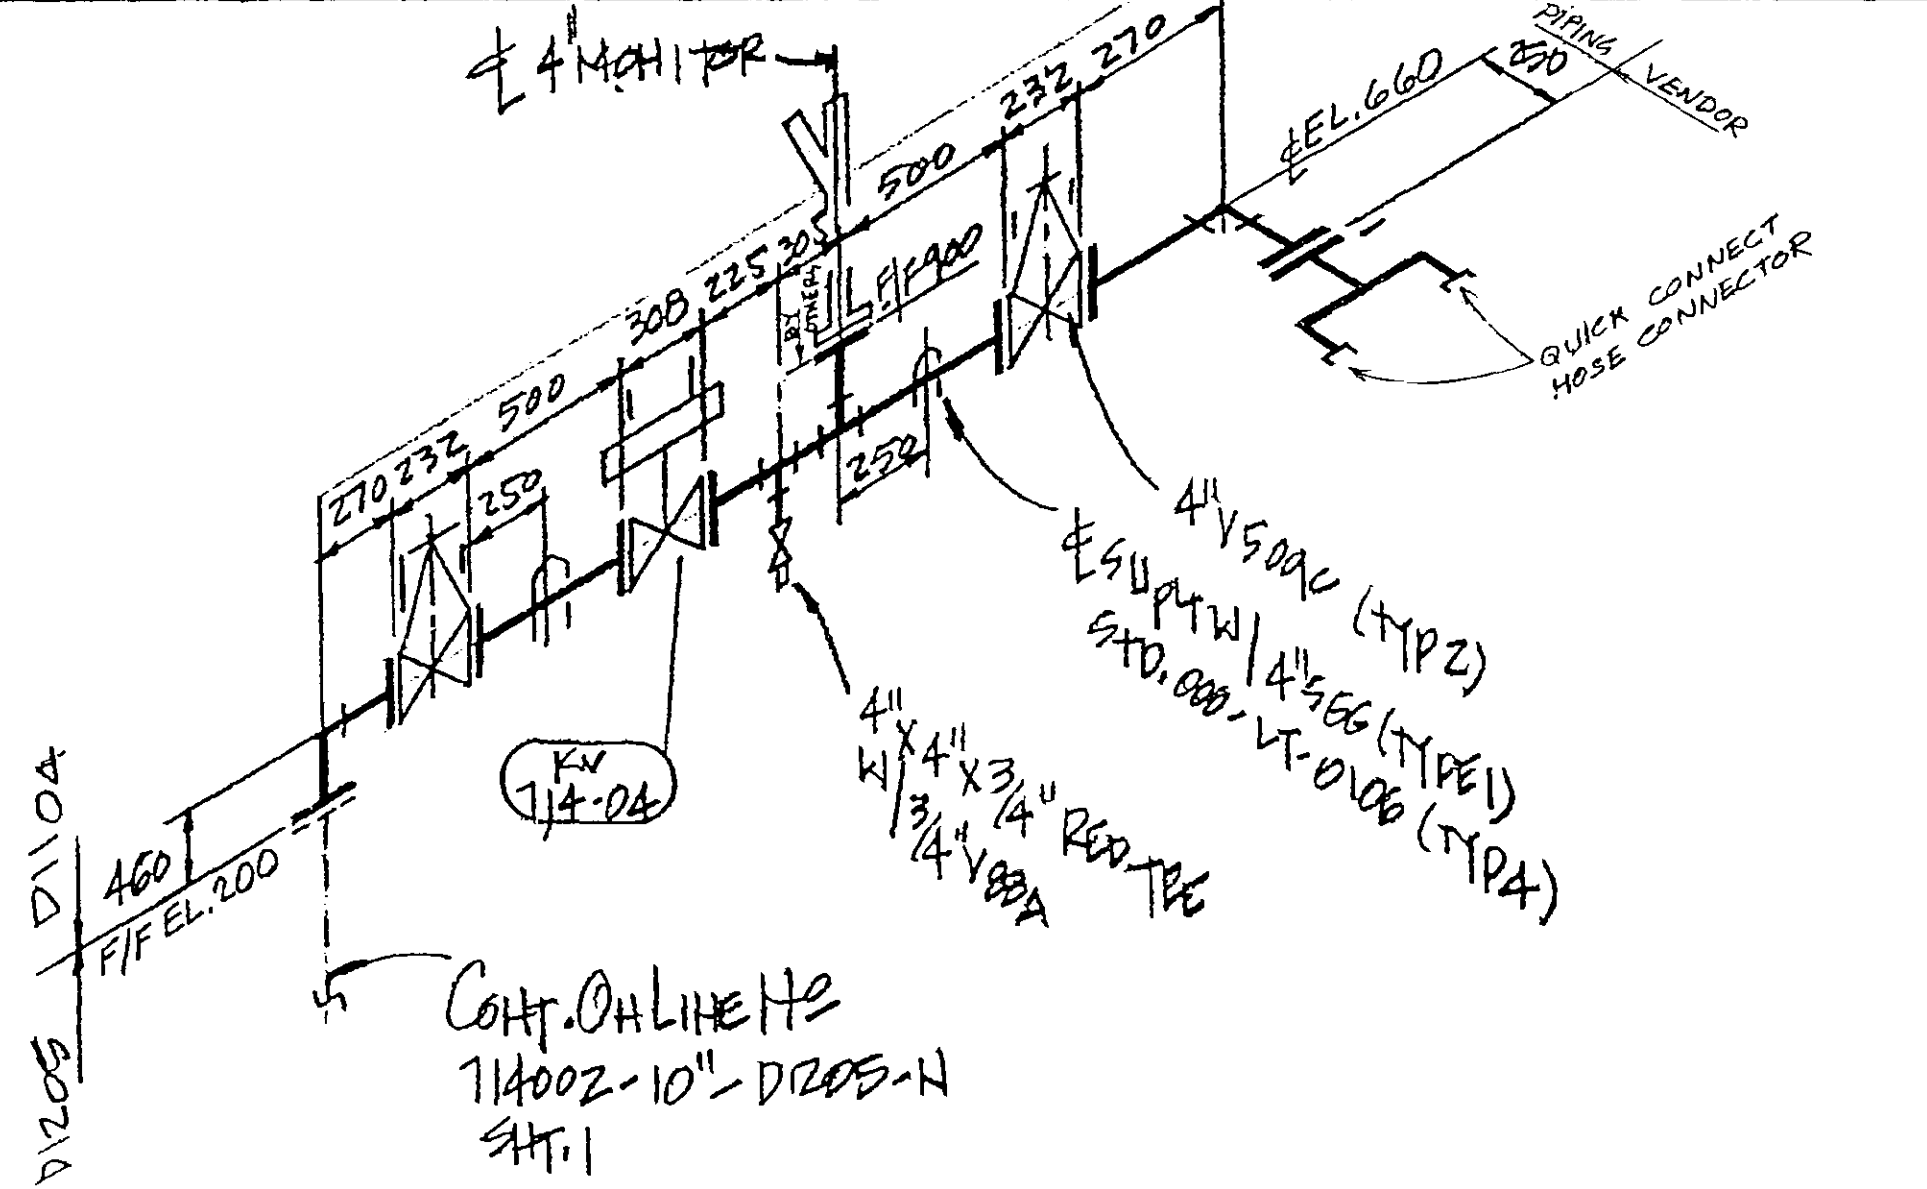 ℄ 4" MONITOR
270
232
500
305
225
308
500
232
270
250
250
BY
OTHERS
F/F 900
℄ EL. 660
250
PIPING
VENDOR
QUICK CONNECT
HOSE CONNECTOR
4" V509C (TYP 2)
℄ SUPT W/ 4" SEG (TYPE 1)
STD. 000-LT-0106 (TYP 4)
4" X 4" X 3/4" RED TEE
W/ 3/4" V88A
KV
714-04
D1104
D1205
460
F/F EL. 200
CONT. ON LINE Nº
714002-10"-D1205-N
SHT. 1